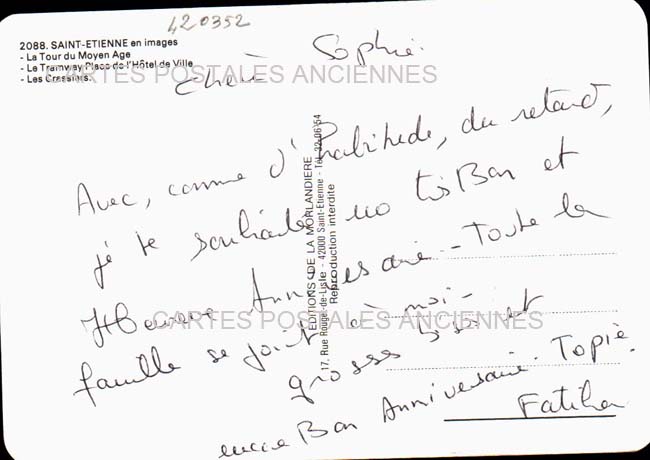 420352
2088. SAINT-ETIENNE en images
- La Tour du Moyen Age
- Le Tramway Place de l'Hôtel de Ville
- Les Crassiers.
CARTES POSTALES ANCIENNES
Chère Sophie.
Avec, comme d'habitude, du retard,
je te souhaite un très Bon et
Heureux Anniversaire - Toute la
famille se joint à moi -
grosses bises et
encore Bon Anniversaire. Topie.
Fatiha
EDITIONS DE LA MORLANDIERE
17, Rue Rouget-de-Lisle - 42000 Saint-Etienne - Tél. 32-06-54
Reproduction interdite
CARTES POSTALES ANCIENNES